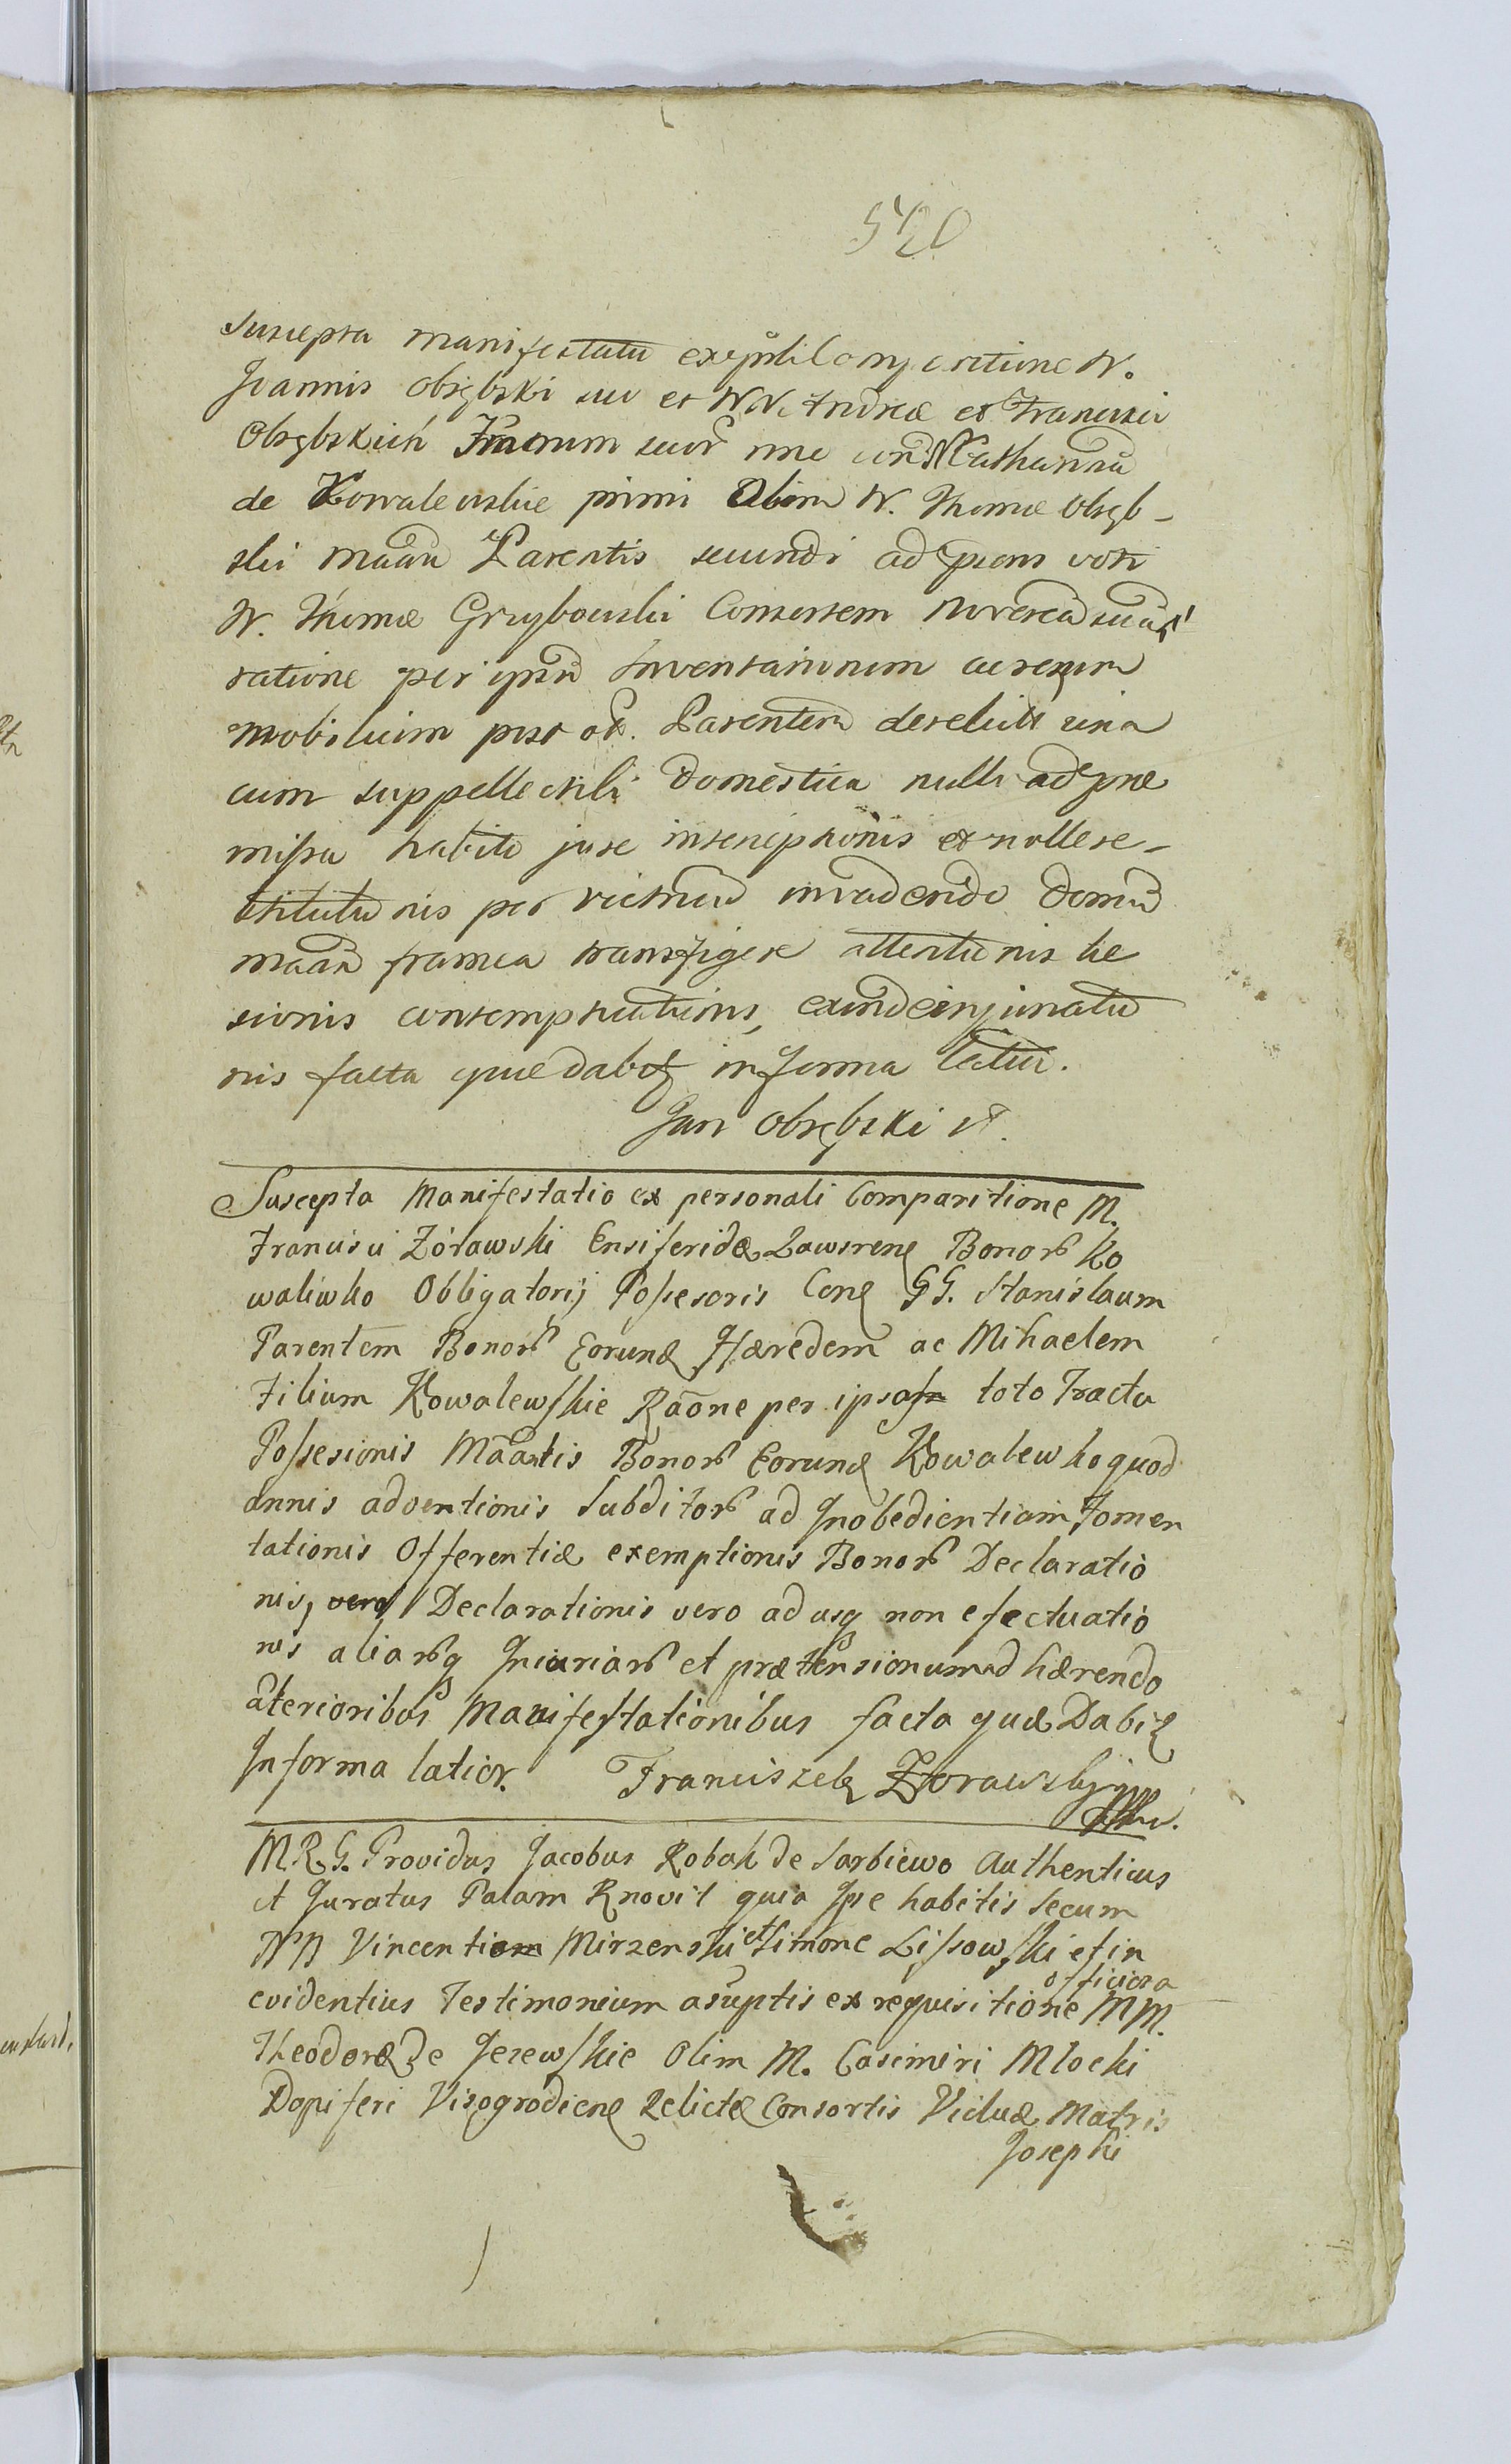 520
Suscepta manifestatio ex psnli Comparitione N.
Joannis Obrębski suo et NN. Andreæ et Francisci
Obrębskich Fratrum suor nne con Catharinā
de Kowalewskie primi Olim N. Thomæ Obręb-
ski māan Parentis secundi ad præns voti
N. Thomæ Grzybowski Consortem Novercā suā
ratione per ipsā Inventarionum ac rerum
mobilium post ol. Parentem derelict una
cum suppellectili domestica nullo ad præ
missa habito jure inscriptionis et nolle re-
stitutionis per victricū invadendo domū
māan framea transfigere attentionis læ
sionis contemptuationis, exinde injuriatio
nis facta quæ dabitz in forma latiti.
Jan Obrębski
Suscepta Manifestatio ex personali Comparitione M.
Francisci Żórawski Ensiferidæ Zawsrenę Bonorꝝ Ko
waliwko Obligatorij Possesoris Conę GG. Stanislaum
Parentem Bonorꝝ Eorundę Hæredem ac Mihaelem
Filium Kowalewskie Rāone per ipsos toto Tractu
Possesionis Māantis Bonorꝝ Eorundę Kowalewko quod
annis adventionis Subditorꝝ ad Inobedientiam, Fomen
tationis Offerentiæ exemptionis Bonorꝝ Declaratio
nis, Declarationis vero ad usq non efectuatio
nis aliarꝝq Iniuriarꝝ et prætensionum ad hærendo
āterioribus Manifestationibus facta quæ Dabitz
In forma latior. Franciszek Zorawski mp
M.R.G. Providus Jacobus Robak de Sarbiewo Authenticus
et Juratus Palam Rnovit quia Ipse habitis secum
NN Vincentio Mirzenski et Simone Lissowski et in
evidentius Testimonium asuptis ex requisitione officiosa MM.
Theodoræ de Jezewskie Olim M. Casimiri Mlocki
Dapiferi Visogrodienę Relictæ Consortis Viduæ Matris
Josephi